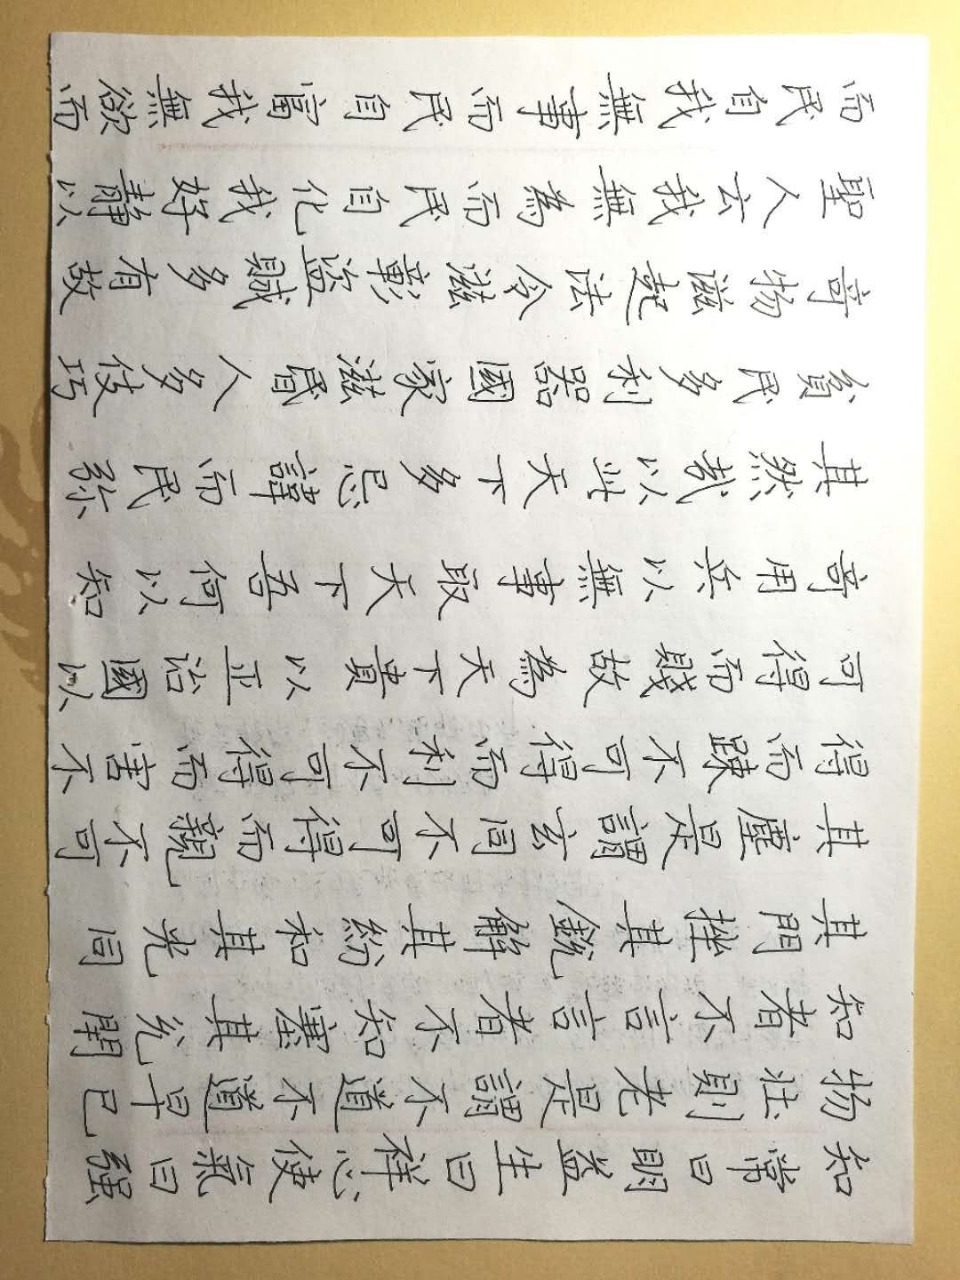 知常曰明益生曰祥心使氣曰强
物壯則老是謂不道不道早已
知者不言言者不知塞其兌閉
其門挫其銳解其紛和其光同
其塵是謂玄同不可得而親不可
得而踈不可得而利不可得而害不
可得而賤故為天下貴以正治國以
竒用兵以無事取天下吾何以知
其然哉以此天下多忌諱而民弥
貧民多利器國家滋昬人多伎巧
竒物滋起法令滋彰盜賊多有故
聖人云我無為而民自化我好靜以
而民自我無事而民自富我無欲而